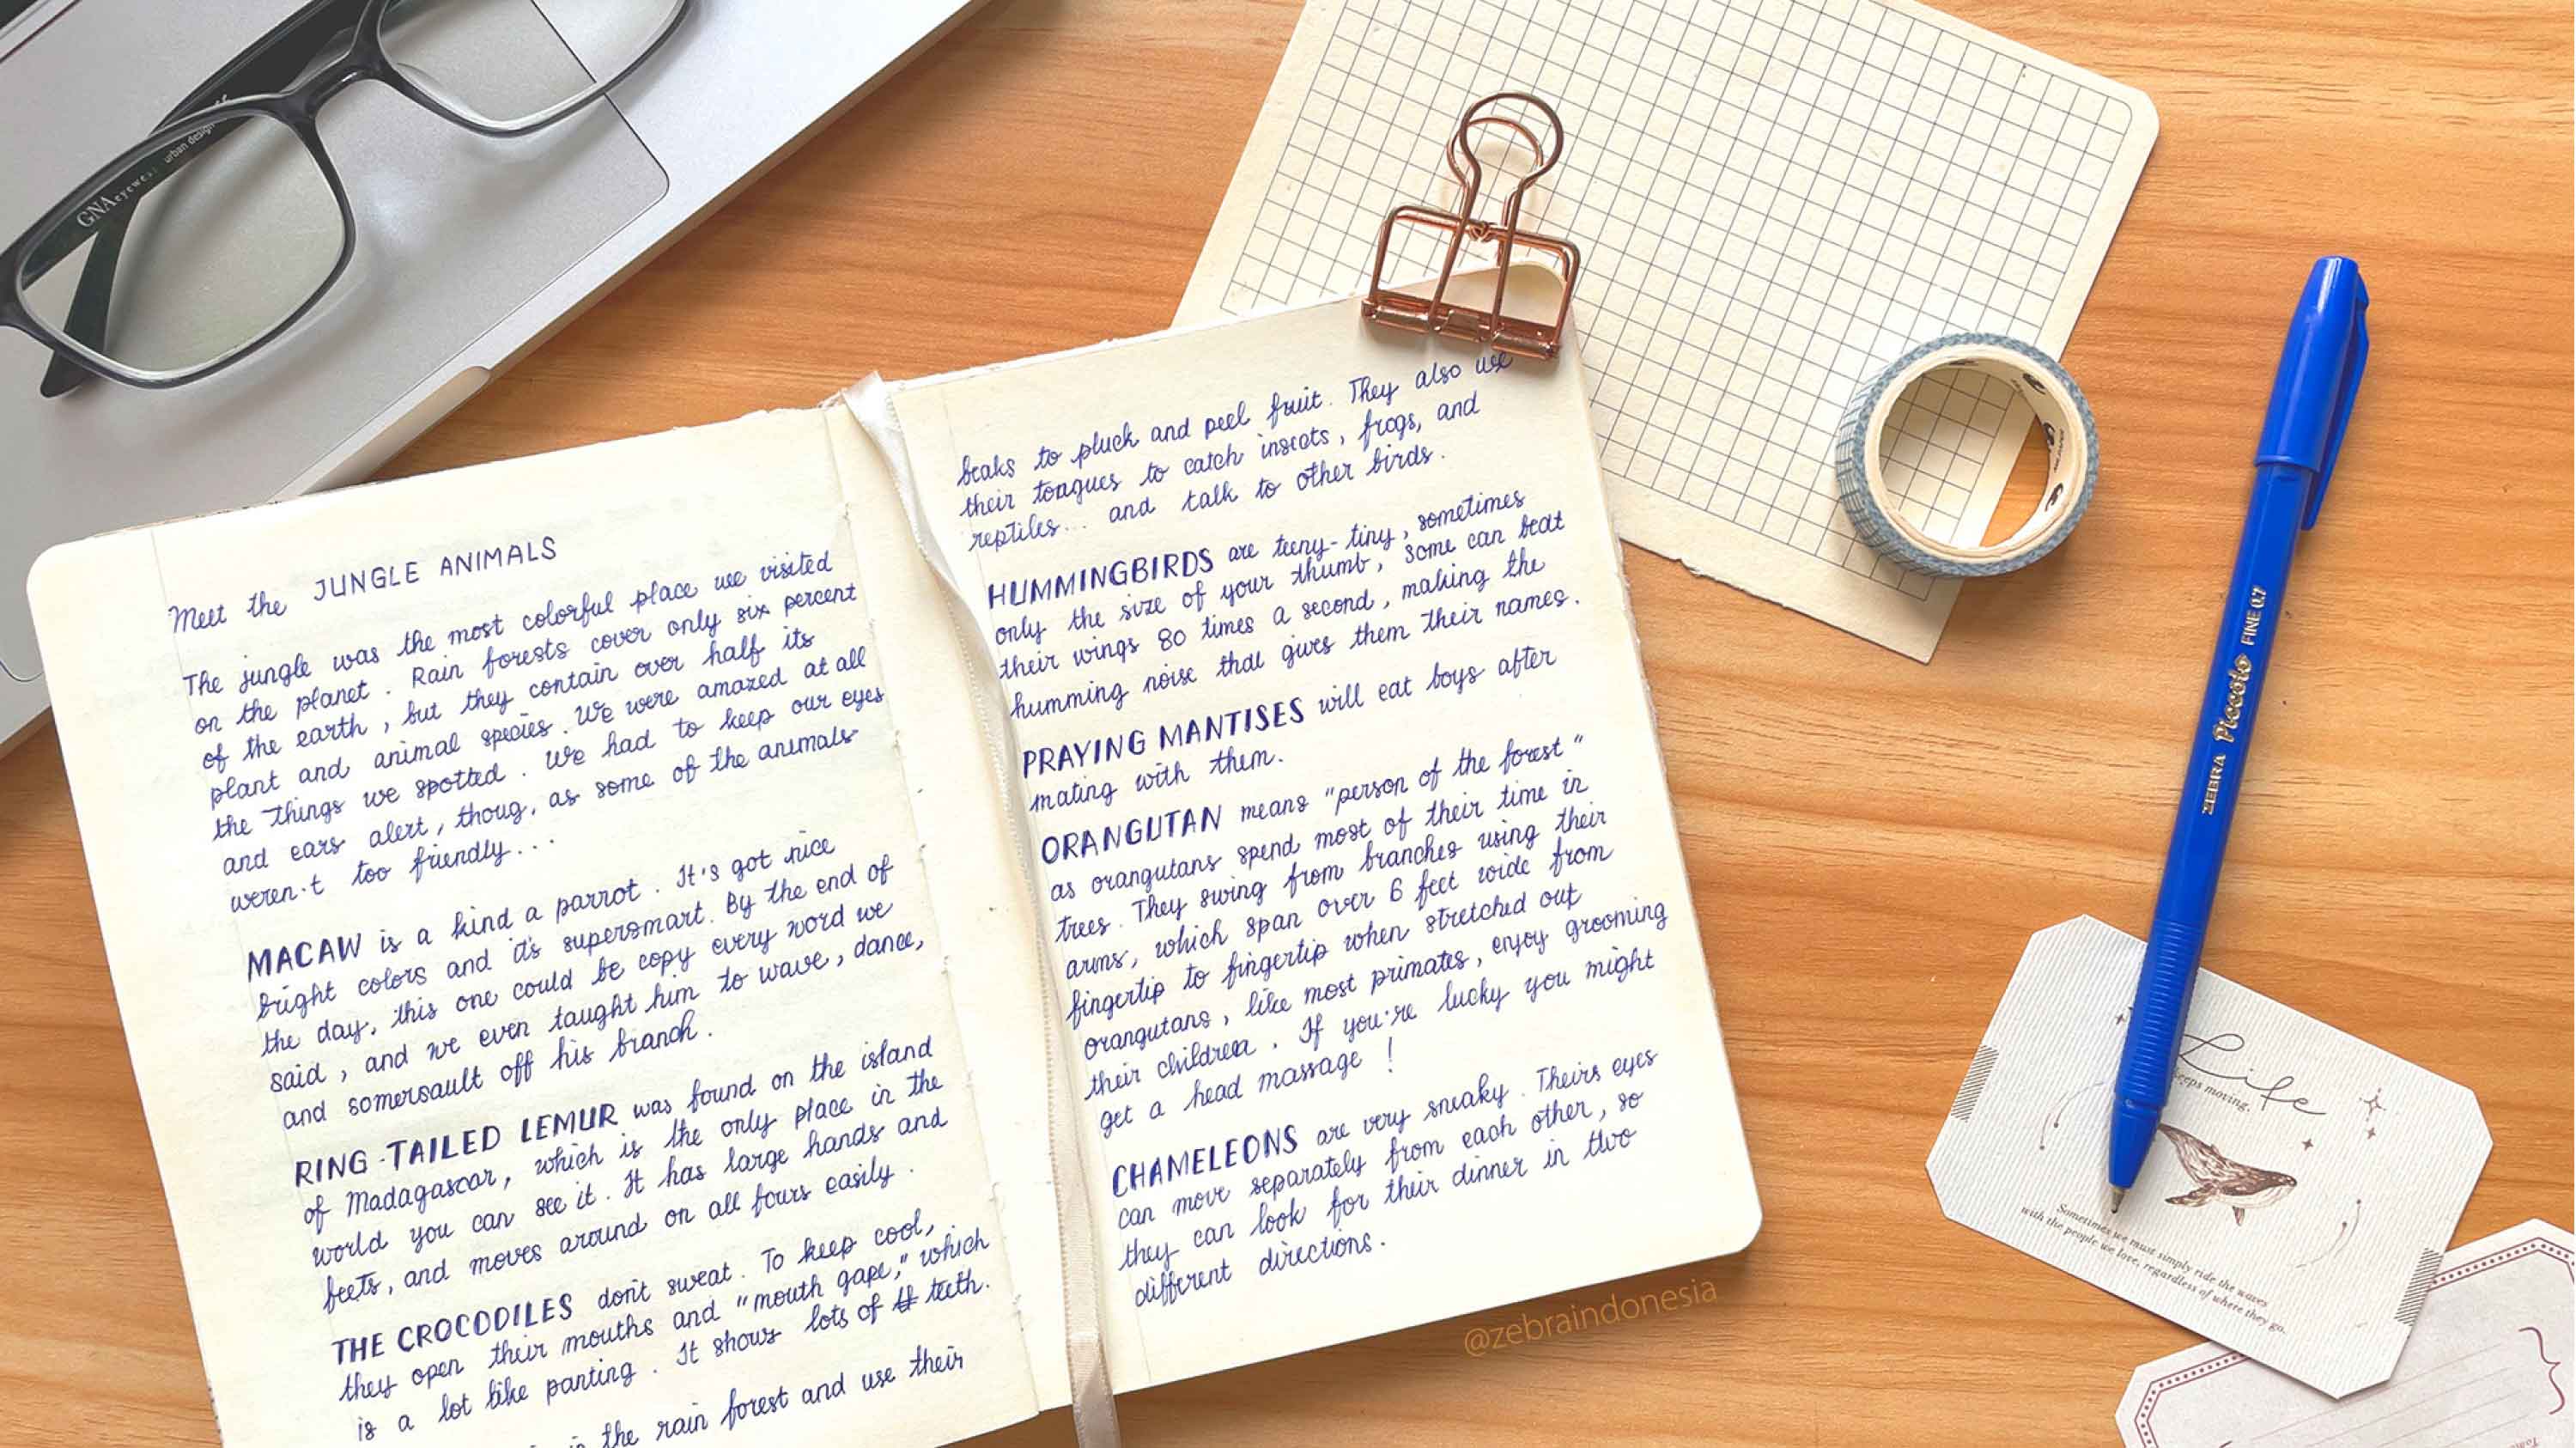 GNA eyewear
urban design
Meet the JUNGLE ANIMALS
The jungle was the most colorful place we visited
on the planet. Rain forests cover only six percent
of the earth, but they contain over half its
plant and animal species. We were amazed at all
the things we spotted. We had to keep our eyes
and ears alert, thoug, as some of the animals
weren't too friendly...
MACAW is a kind a parrot. It's got nice
bright colors and it's supersmart. By the end of
the day, this one could be copy every word we
said, and we even taught him to wave, dance,
and somersault off his branch.
RING-TAILED LEMUR was found on the island
of Madagascar, which is the only place in the
world you can see it. It has large hands and
feets, and moves around on all fours easily.
THE CROCODILES don't sweat. To keep cool,
they open their mouths and "mouth gape," which
is a lot like panting. It shows lots of teeth.
the rain forest and use their
beaks to pluck and peel fruit. They also use
their tongues to catch insects, frogs, and
reptiles... and talk to other birds.
HUMMINGBIRDS are teeny-tiny, sometimes
only the size of your thumb, some can beat
their wings 80 times a second, making the
humming noise that gives them their names.
PRAYING MANTISES will eat boys after
mating with them.
ORANGUTAN means "person of the forest"
as orangutans spend most of their time in
trees. They swing from branches using their
arms, which span over 6 feet wide from
fingertip to fingertip when stretched out
orangutans, like most primates, enjoy grooming
their children. If you're lucky you might
get a head massage!
CHAMELEONS are very sneaky. Theirs eyes
can move separately from each other, so
they can look for their dinner in two
different directions.
@zebraindonesia
ZEBRA Piccolo FINE 0.7
Life
keeps moving.
Sometimes we must simply ride the waves
with the people we love, regardless of where they go.